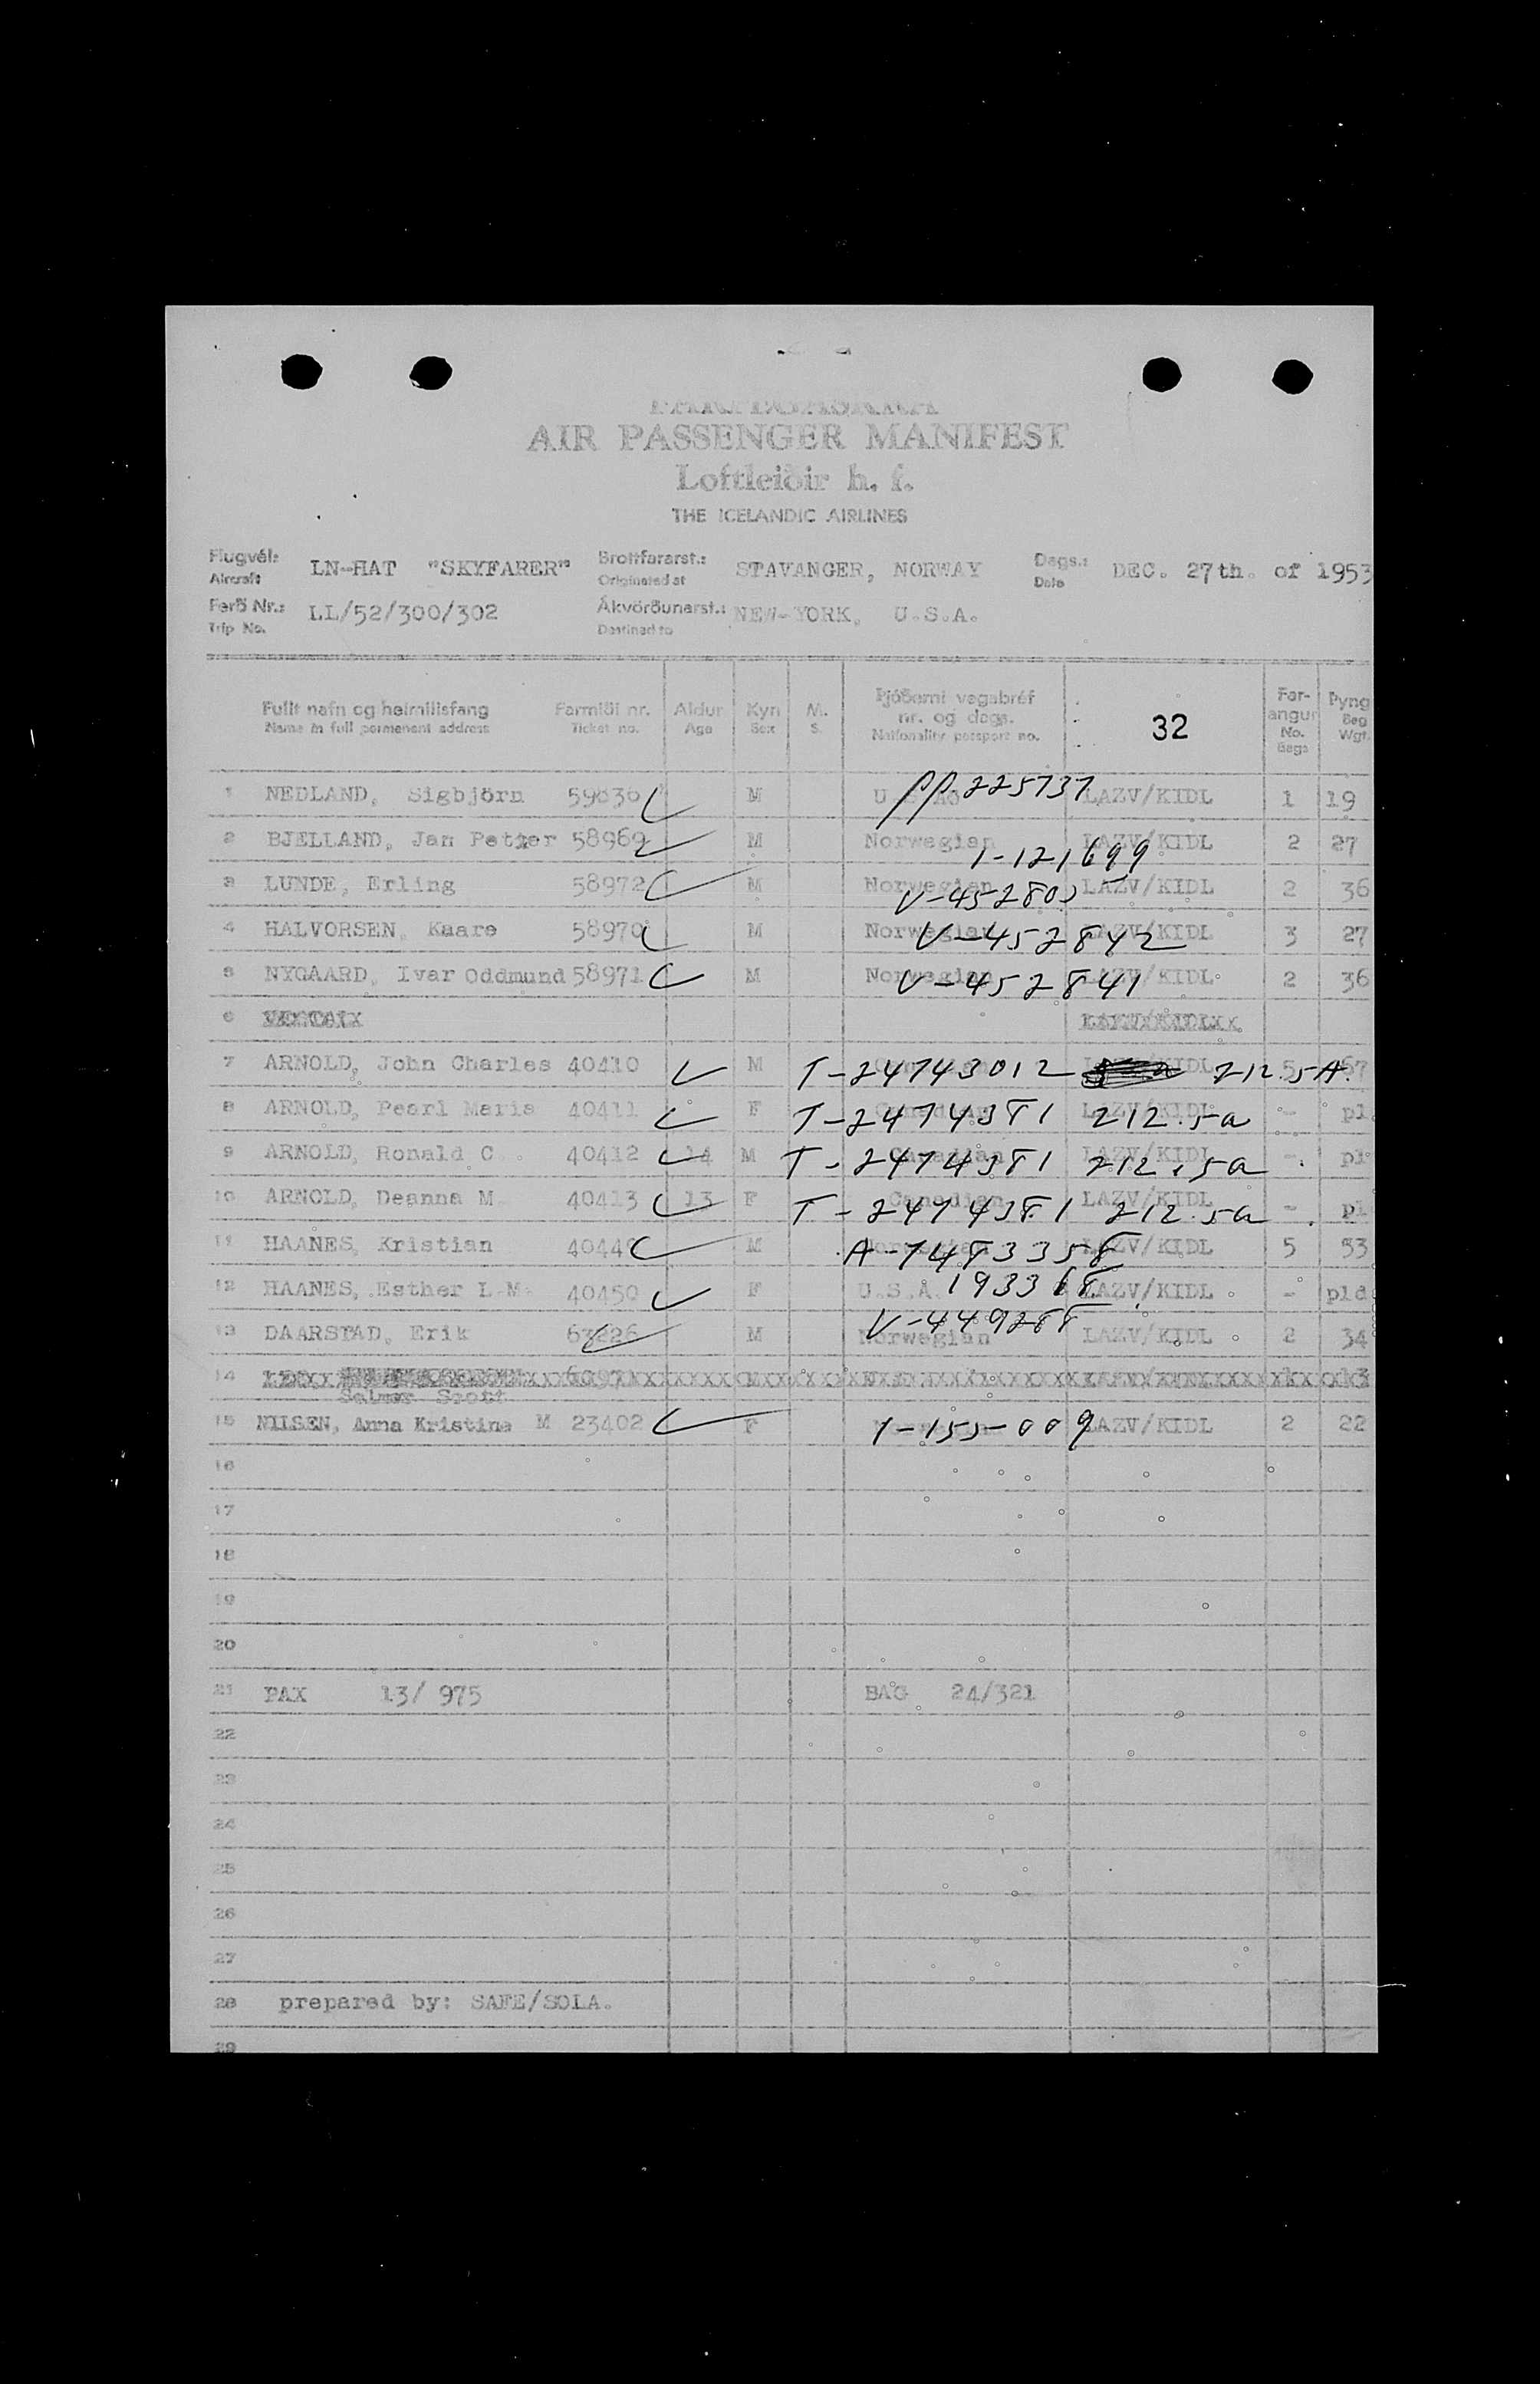 FARÞEGASKRÁ
AIR PASSENGER MANIFEST
Loftleiðir h. f.
THE ICELANDIC AIRLINES
Flugvél: LN-HAT "SKYFARER" Brottfararst.: STAVANGER, NORWAY Dags.: DEC. 27th. of 1953
Aircraft Originated at Date
Ferð Nr.: LL/52/300/302 Ákvörðunarst.: NEW-YORK, U.S.A.
Trip No. Destined to
Fullt nafn og heimilisfang Farmiði nr. Aldur Kyn M. Þjóðerni vegabréf nr. og dags. 32 Far-angur Þyng
Name in full permanent address Ticket no. Age Sex S. Nationality passport no. No. Bags Bag Wgt.
1 NEDLAND, Sigbjörn 59636 M pp. 225737 LAZV/KIDL 1 19
2 BJELLAND, Jan Petter 58969 M Norwegian LAZV/KIDL 2 27
1-121699
3 LUNDE, Erling 58972 M Norwegian LAZV/KIDL 2 36
4 HALVORSEN, Kaare 58970 M Norwegian V-452842 LAZV/KIDL 3 27
5 NYGAARD, Ivar Oddmund 58971 M Norwegian V-452841 LAZV/KIDL 2 36
6
7 ARNOLD, John Charles 40410 M T-24743012 212.5A. 5
8 ARNOLD, Pearl Marie 40411 F T-2474381 LAZV/KIDL 212.5a - pl
9 ARNOLD, Ronald C. 40412 14 M Canadian T-2474381 LAZV/KIDL 212.5a - pl
10 ARNOLD, Deanna M 40413 13 F Canadian T-2474381 LAZV/KIDL 212.5a - pl
11 HAANES, Kristian M A-7483358 LAZV/KIDL 5 53
12 HAANES, Esther L M 40450 F U.S.A. 193368 LAZV/KIDL - pld
13 DAARSTAD, Erik 63226 M Norwegian V-449288 LAZV/KIDL 2 34
14
15 NILSEN, Anna Kristine M 23402 F 1-155-009 LAZV/KIDL 2 22
16
17
18
19
20
21 PAX 13/ 975 BAG 24/321
22
23
24
25
26
27
28 prepared by: SAFE/SOLA.
29